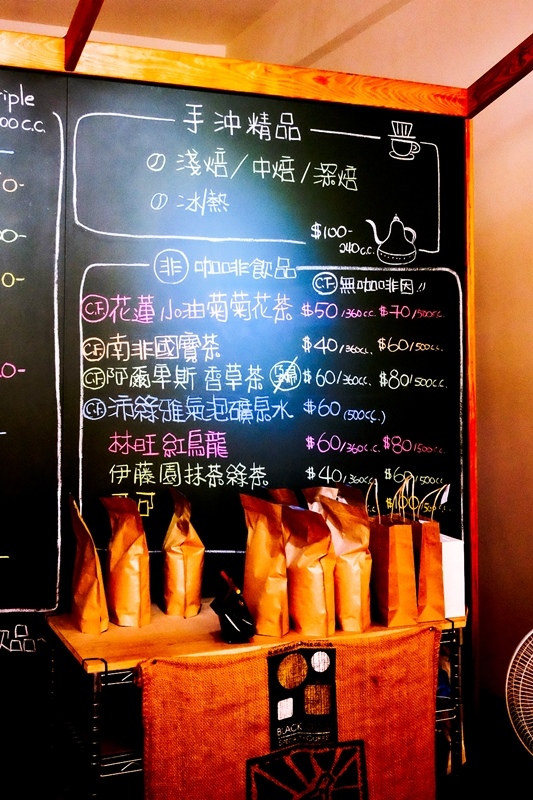 手沖精品
淺焙/中焙/深焙
冰/熱
$100-
240c.c.
非咖啡飲品
C.F無咖啡因!!
C.F花蓮小油菊菊花茶 $50/360c.c. $70/500c.c.
C.F南非國寶茶 $40/360c.c. $60/500c.c.
C.F阿爾卑斯香草茶 $60/360c.c. $80/500c.c.
C.F沛綠雅氣泡礦泉水 $60(500c.c.)
林旺紅烏龍 $60/360c.c. $80/500c.c.
伊藤園抹茶綠茶 $40/360c.c. $60/500c.c.
可可
BLACK